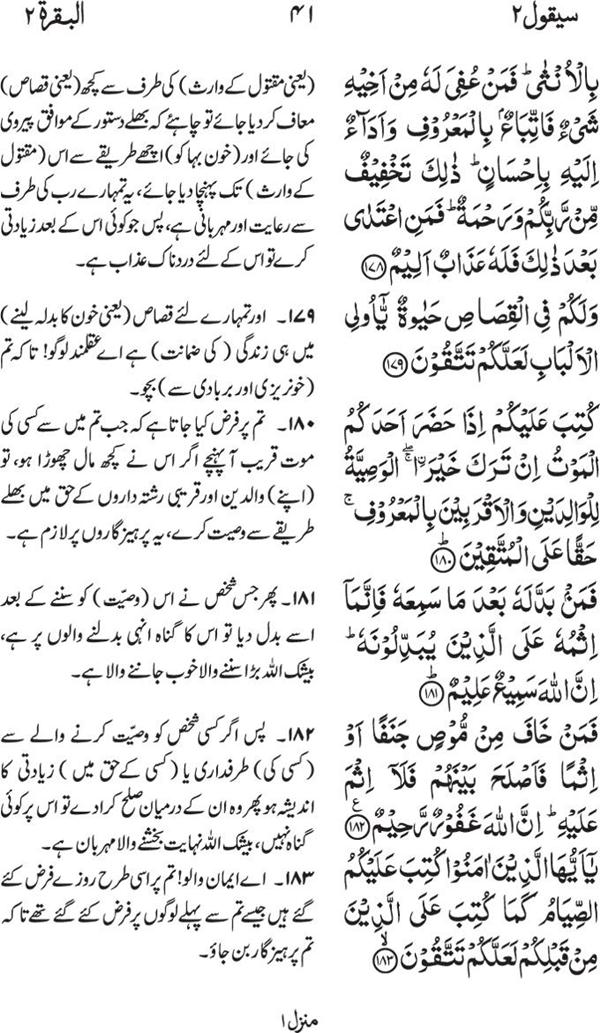 سیقول ۲
۴۱
البقرۃ ۲
بِالۡاُنۡثٰی ؕ فَمَنۡ عُفِیَ لَہٗ مِنۡ اَخِیۡہِ
شَیۡءٌ فَاتِّبَاعٌۢ بِالۡمَعۡرُوۡفِ وَ اَدَآءٌ
اِلَیۡہِ بِاِحۡسَانٍ ؕ ذٰلِکَ تَخۡفِیۡفٌ
مِّنۡ رَّبِّکُمۡ وَ رَحۡمَۃٌ ؕ فَمَنِ اعۡتَدٰی
بَعۡدَ ذٰلِکَ فَلَہٗ عَذَابٌ اَلِیۡمٌ ﴿۱۷۸﴾
وَ لَکُمۡ فِی الۡقِصَاصِ حَیٰوۃٌ یّٰۤاُولِی
الۡاَلۡبَابِ لَعَلَّکُمۡ تَتَّقُوۡنَ ﴿۱۷۹﴾
کُتِبَ عَلَیۡکُمۡ اِذَا حَضَرَ اَحَدَکُمُ
الۡمَوۡتُ اِنۡ تَرَکَ خَیۡرَۨا ۚۖ الۡوَصِیَّۃُ
لِلۡوَالِدَیۡنِ وَ الۡاَقۡرَبِیۡنَ بِالۡمَعۡرُوۡفِ ۚ
حَقًّا عَلَی الۡمُتَّقِیۡنَ ﴿۱۸۰﴾ؕ
فَمَنۡۢ بَدَّلَہٗ بَعۡدَ مَا سَمِعَہٗ فَاِنَّمَاۤ
اِثۡمُہٗ عَلَی الَّذِیۡنَ یُبَدِّلُوۡنَہٗ ؕ
اِنَّ اللہَ سَمِیۡعٌ عَلِیۡمٌ ﴿۱۸۱﴾ؕ
فَمَنۡ خَافَ مِنۡ مُّوۡصٍ جَنَفًا اَوۡ
اِثۡمًا فَاَصۡلَحَ بَیۡنَہُمۡ فَلَاۤ اِثۡمَ
عَلَیۡہِ ؕ اِنَّ اللہَ غَفُوۡرٌ رَّحِیۡمٌ ﴿۱۸۲﴾٪
یٰۤاَیُّہَا الَّذِیۡنَ اٰمَنُوۡا کُتِبَ عَلَیۡکُمُ
الصِّیَامُ کَمَا کُتِبَ عَلَی الَّذِیۡنَ
مِنۡ قَبۡلِکُمۡ لَعَلَّکُمۡ تَتَّقُوۡنَ ﴿۱۸۳﴾ۙ
(یعنی مقتول کے وارث) کی طرف سے کچھ (یعنی قصاص)
معاف کر دیا جائے تو چاہئے کہ بھلے دستور کے موافق پیروی
کی جائے اور (خون بہا کو) اچھے طریقے سے اس (مقتول
کے وارث) تک پہنچا دیا جائے، یہ تمہارے رب کی طرف
سے رعایت اور مہربانی ہے، پس جو کوئی اس کے بعد زیادتی
کرے تو اس کے لئے دردناک عذاب ہے۔
۱۷۹۔ اور تمہارے لئے قصاص (یعنی خون کا بدلہ لینے)
میں ہی زندگی (کی ضمانت) ہے اے عقلمند لوگو! تاکہ تم
(خونریزی اور بربادی سے) بچو۔
۱۸۰۔ تم پر فرض کیا جاتا ہے کہ جب تم میں سے کسی کی
موت قریب آ پہنچے اگر اس نے کچھ مال چھوڑا ہو، تو
(اپنے) والدین اور قریبی رشتہ داروں کے حق میں بھلے
طریقے سے وصیت کرے، یہ پرہیزگاروں پر لازم ہے۔
۱۸۱۔ پھر جس شخص نے اس (وصیّت) کو سننے کے بعد
اسے بدل دیا تو اس کا گناہ انہی بدلنے والوں پر ہے،
بیشک اللہ بڑا سننے والا خوب جاننے والا ہے۔
۱۸۲۔ پس اگر کسی شخص کو وصیّت کرنے والے سے
(کسی کی) طرفداری یا (کسی کے حق میں) زیادتی کا
اندیشہ ہو پھر وہ ان کے درمیان صلح کرا دے تو اس پر کوئی
گناہ نہیں، بیشک اللہ نہایت بخشنے والا مہربان ہے۔
۱۸۳۔ اے ایمان والو! تم پر اسی طرح روزے فرض کئے
گئے ہیں جیسے تم سے پہلے لوگوں پر فرض کئے گئے تھے تاکہ
تم پرہیزگار بن جاؤ۔
منزل ۱